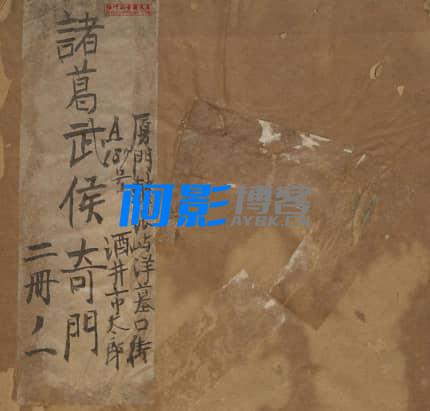 諸葛武侯奇門
二冊ノ一
厦門鼓浪屿洋墓口街
A187号
酒井市太郎
阿影博客
AYBK.CN